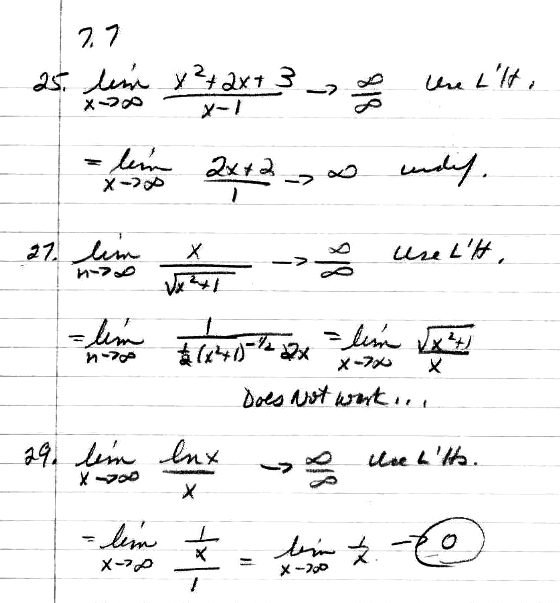 7.7
25. lim x→∞ (x²+2x+3)/(x-1) → ∞/∞ Use L'H.
= lim x→∞ (2x+2)/1 → ∞ undef.
27. lim n→∞ x/√(x²+1) → ∞/∞ Use L'H.
= lim n→∞ 1/(½(x²+1)^(-1/2) 2x) = lim x→∞ √(x²+1)/x
Does Not work...
29. lim x→∞ ln x/x → ∞/∞ Use L'Hs.
= lim x→∞ (1/x)/1 = lim x→∞ 1/x → 0